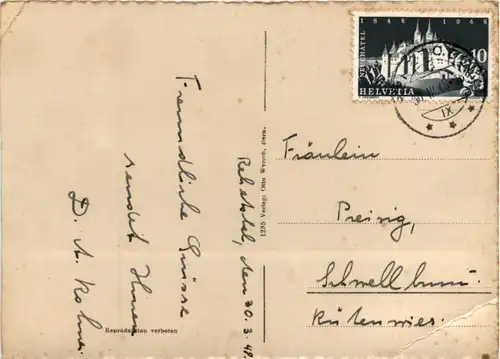 1848 1948
NEUCHATEL
10
HELVETIA
IX
Rehetobel, den 30.3.48
Freundliche Grüsse
sendet Ihnen
D. A. Kohner
1235 Verlag: Otto
Reproduktion verboten
Fräulein
Preisig,
Schwellbrunn.
Rütenwies.